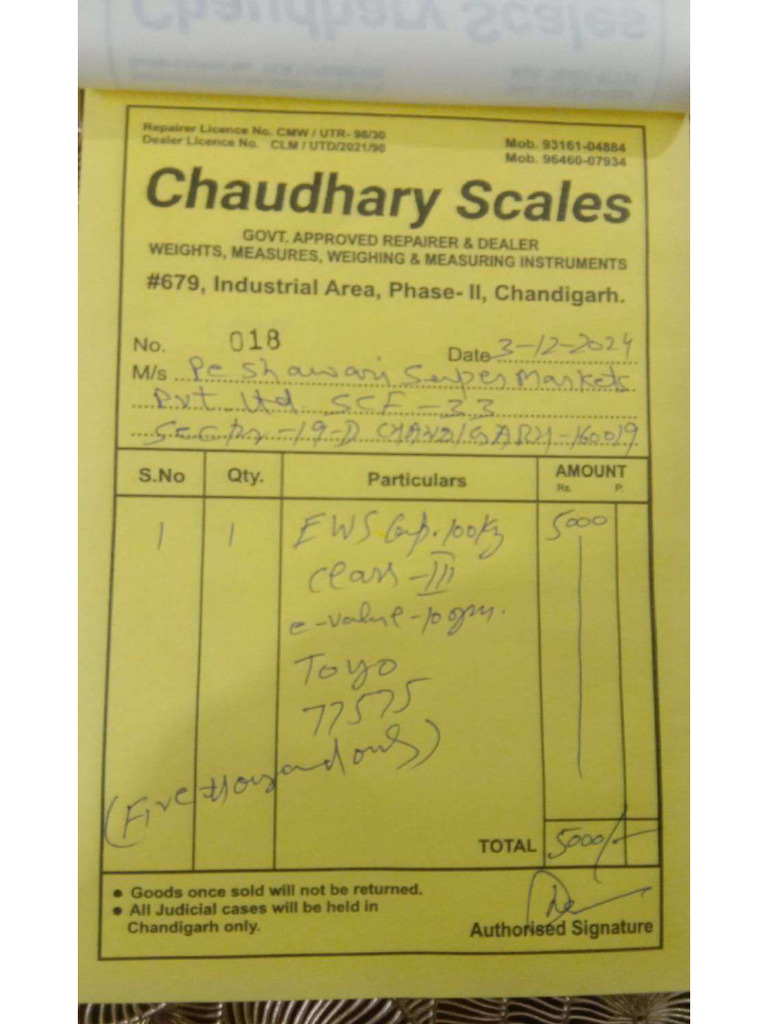 Repairer Licence No. CMW / UTR- 98/30
Dealer Licence No. CLM / UTD/2021/90
Mob. 93161-04884
Mob. 96460-07934
Chaudhary Scales
GOVT. APPROVED REPAIRER & DEALER
WEIGHTS, MEASURES, WEIGHING & MEASURING INSTRUMENTS
#679, Industrial Area, Phase- II, Chandigarh.
No. 018 Date 3-12-2024
M/s Peshawari Super Markets
Pvt Ltd SCF-33
Sector-19-D CHANDIGARH-160019
S.No Qty. Particulars AMOUNT
Rs. P.
1 1 EWS Cap. 100Kg 5000
Class-III
e-value-10gm.
Toyo
77575
(Five thousand only)
TOTAL 5000/-
• Goods once sold will not be returned.
• All Judicial cases will be held in
Chandigarh only.
Authorised Signature